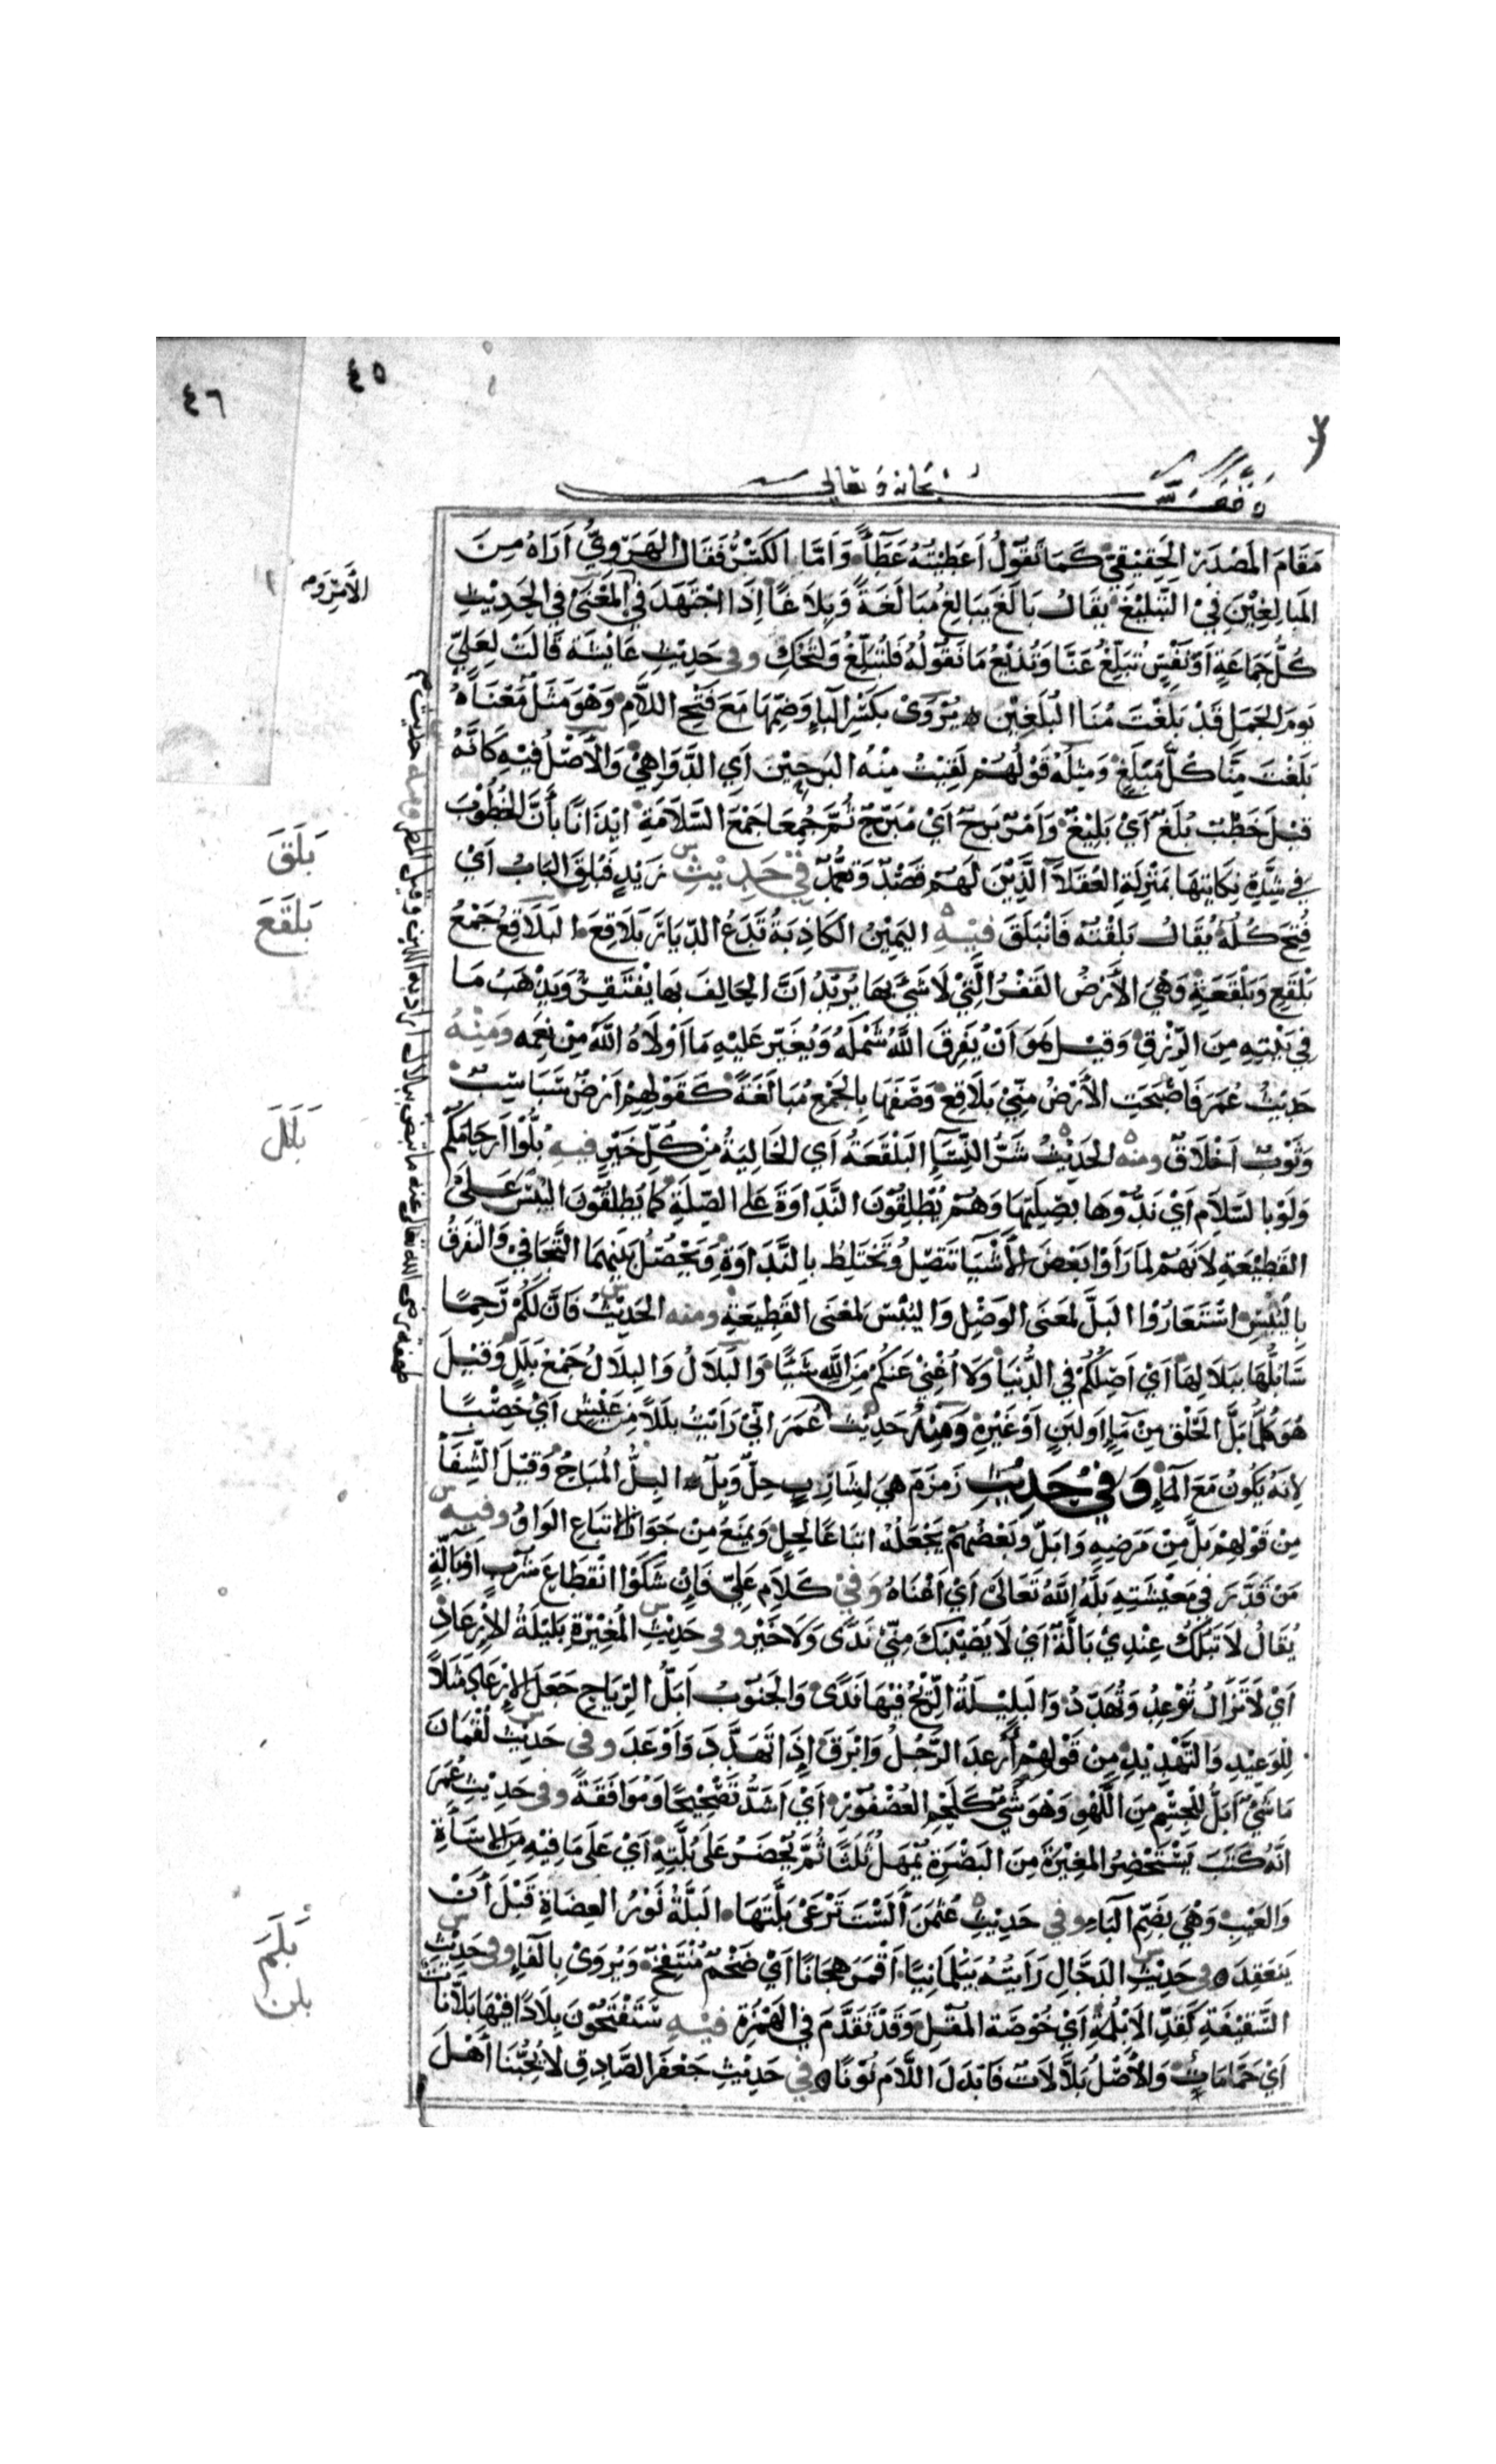 ٤٥
٤٦
وقف لله سبحانه وتعالى
مَقَامَ المَصْدَرِ الحَقِيْقِيّ كَمَا تَقُوْلُ اَعْطَيْتُهُ عَطَآءً وَاَمَّا الكَسْرُ فَقَالَ الهَرَوِيُّ اَرَاهُ مِنَ
المَبَالِغِيْنَ فِيْ التَّبْلِيْغِ يقَالُ بَالَغَ يُبَالِغُ مُبَالَغَةً وَبِلَاغًا اِذَا اجْتَهَدَ فِي المَعْنَى فِي الحَدِيْثِ
كُلُّ جَمَاعَةٍ اَوْ نَفْسٍ تُبَلِّغُ عَنَّا وَتُذِيْعُ مَا نَقُوْلُهُ فَلْتُبَلِّغْ وَلْتَحْكِ وفى حَدِيْثِ عَايْشَة قَالَتْ لِعَلِيّ
يَوْمَ الجَمَلِ قَدْ بَلَغْتَ مِنَّا البُلَغِيْنَ يُرْوَى بِكَسْرِ البَاءِ وَضَمِّهَا مَعَ فَتْحِ اللَّامِ وَهُوَ مَثَلٌ مَعْنَاهُ
بَلَغْتَ مِنَّا كُلَّ مَبْلَغٍ وَمِثْلُهُ قَوْلُهُمْ لَقِيْتُ مِنْهُ البُرَحِيْنَ اَيِ الدَّوَاهِيْ وَالاَصْلُ فِيْهِ كَاَنَّهُ
قِيْلَ خَطْبٌ بُلَغٌ اَيْ بَلِيْغٌ وَاَمْرٌ بِرَحٌ اَيْ مُبَرِّحٌ ثُمَّ جُمِعَا جَمْعَ السَّلَامَةِ اِيْذَانًا بِأَنَّ الخُطُوْبَ
فِي شِدَّةِ نِكَايَتِهَا بِمَنْزِلَةِ العُقَلَاءِ الَّذِيْنَ لَهُمْ قَصْدٌ وَتَعَمُّدٌ فِيْ حَدِيْثِ زَيْدٍ فَبُلِقَ البَابُ اَيْ
فُتِحَ كُلُّهُ يُقَالُ بَلَقْتُهُ فَانْبَلَقَ فِيْهِ اليَمِيْنُ الكَاذِبَةُ تَدَعُ الدِّيَارَ بَلَاقِعَ البَلَاقِعُ جَمْعُ
بَلْقَعٍ وَبَلْقَعَةٍ وَهْيَ الأَرْضُ القَفْرُ الَّتِيْ لَا شَيْءَ بِهَا يُرِيْدُ اَنَّ الحَالِفَ بِهَا يَفْتَقِرُ وَيَذْهَبُ مَا
فِي بَيْتِهِ مِنَ الرِّزْقِ وَقِيْلَ هُوَ اَنْ يُفَرِّقَ اللَّهُ شَمْلَهُ وَيُغَيِّرَ عَلَيْهِ مَا اَوْلَاهُ اللهُ مِنْ نِعَمِهِ وَمِنْهُ
حَدِيْثُ عُمَرَ فَاَصْبَحَتِ الاَرْضُ مِنِّيْ بَلَاقِعَ وَصَفَهَا بِالجَمْعِ مُبَالَغَةً كَقَوْلِهِمْ اَرْضٌ سَبَاسِبُ
وَثَوْبٌ اَخْلَاقٌ ومنه الحَدِيْثُ شَرُّ النِّسَآءِ البَلْقَعَةُ اَيِ الخَالِيَةُ مِنْ كُلِّ خَيْرٍ فِيهِ بُلُّوْا اَرْحَامَكُمْ
وَلَوْ بِالسَّلَامِ اَيْ نَدُّوْهَا بِصِلَتِهَا وَهُمْ يُطْلِقُوْنَ النَّدَاوَةَ عَلَى الصِّلَةِ كَمَا يُطْلِقُوْنَ اليُبْسَ عَلَىْ
القَطِيْعَةِ لِاَنَّهُمْ لَمَّا رَاَوْا بَعْضَ الاَشْيَاءِ تَتَّصِلُ وَتَخْتَلِطُ بِالنَّدَاوَةِ وَيَحْصُلُ بَيْنَهُمَا التَّجَافِيْ وَالتَّفَرُّقُ
بِاليُبْسِ اسْتَعَارُوْا البَلَّ لِمَعْنَى الوَصْلِ وَاليُبْسَ لِمَعْنَى القَطِيْعَةِ ومنه الحَدِيْثُ فَاِنَّ لَكُمْ رَحِمًا
سَاَبُلُّهَا بِبَلَالِهَا اَيْ اَصِلُكُمْ فِي الدُّنْيَا وَلَا اُغْنِيْ عَنْكُمْ مِنَ اللهِ شَيْئًا وَالبَلَالُ وَالبِلَالُ جَمْعُ بَلَلٍ وَقِيْلَ
هُوَ كُلُّ مَا بَلَّ الحَلْقَ مِنْ مَاءٍ اَوْ لَبَنٍ اَوْ غَيْرِهِ وَمِنْهُ حَدِيْثُ عُمَرَ اِنِّيْ رَاَيْتُ بَلَلًا مِنْ عَيْشٍ اَيْ خِصْبًا
لِاَنَّهُ يَكُوْنُ مَعَ المَاءِ وَفِيْ حَدِيْثِ زَمْزَمَ هِيَ لِشَارِبٍ حِلٌّ وَبِلٌّ البِلُّ المُبَاحُ وَقِيْلَ الشِّفَاءُ
مِنْ قَوْلِهِمْ بَلَّ مِنْ مَرَضِهِ وَاَبَلَّ وَبَعْضُهُمْ يَجْعَلُهُ اتْبَاعًا لِحِلٍّ وَيمنَعُ مِنْ جَوَازِ الاتبَاعِ الوَاوُ وفيه
مَنْ قَدَّرَ فِيْ مَعِيْشَتِهِ بَلَّهُ اللَّهُ تَعَالَىْ اَيْ اَغْنَاهُ وَفِيْ كَلَامِ عَلِيّ فَاِنْ شَكَوْا انْقِطَاعَ شِرْبٍ اَوْ بَالَّةٍ
يُقَالُ لَا تَبُلُّكَ عِنْدِيْ بَالَّةٌ اَيْ لَا يُصِيْبُكَ مِنِّيْ نَدًى وَلَا خَيْر وفى حَدِيْثِ المُغِيْرَةِ بَلِيْلَةُ الاِرْعَادِ
اَيْ لَا تَزَالُ تُوْعِدُ وَتُهَدِّدُ وَالبَلِيْلَةُ الرِّيْحُ فِيْهَا نَدًى وَالجَنُوْبُ اَبَلُّ الرِّيَاحِ جَعَلَ الاِرْعَادَ مَثَلًا
لِلْوَعِيْدِ وَالتَّهْدِيْدِ مِنْ قَوْلِهِمْ أَرْعَدَ الرَّجُلُ وَاَبْرَقَ اِذَا تَهَدَّدَ وَاَوْعَدَ وفى حَدِيْثِ لُقْمَانَ
مَا شَيْءٌ اَبَلَّ لِلجِسْمِ مِنَ اللَّهْوِ وَهُوَ شَيْءٌ كَلَحْمِ العُصْفُوْرِ اَيْ اَشَدُّ تَصْحِيْحًا وَمُوَافَقَةً وفى حَدِيْثِ عُمَرَ
اَنَّهُ كَتَبَ يَسْتَحْضِرُ المُغِيْرَةَ مِنَ البَصْرَةِ يُمْهَلُ ثَلٰثًا ثُمَّ يَحْضَرُ عَلَى بُلَّتِهِ اَيْ عَلَى مَا فِيْهِ مِنَ الاِسَاءَةِ
وَالعَيْبِ وَهْيَ بِضَمِّ البَاءِ وفي حَدِيْثِ عُثْمٰنَ اَلَسْتَ تَرْعَى بَلَّتَهَا البَلَّةُ نَوْرُ العِضَاهِ قَبْلَ اَنْ
يَنْعَقِدَ فِي حَدِيْثِ الدَّجَّالِ رَاَيْتُهُ بَيْلَمَانِيًّا اَقْمَرَ هِجَانًا اَيْ ضَخْمٌ مُنْتَفِخٌ وَيُرْوَىْ بِالفَاءِ وفى حَدِيْثِ
السَّقِيْفَةِ كَقَدِّ الاَبْلُمَةِ اَيْ خُوْصَةِ المُقْلِ وَقَدْ تَقَدَّمَ فِي الهَمْزَةِ فِيْهِ سَتَفْتَحُوْنَ بِلَادًا فِيْهَا بَلَّانَاتٌ
اَيْ حَمَّامَاتٌ وَالاَصْلُ بَلَّالَاتٌ فَاَبْدَلَ اللَّامَ نُوْنًا فِيْ حَدِيْثِ جَعْفَرَ الصَّادِقِ لَا يُحِبُّنَا اَهْلَ
بَلَقَ
بَلْقَعَ
بَلَلَ
بَلَمَ
بلن